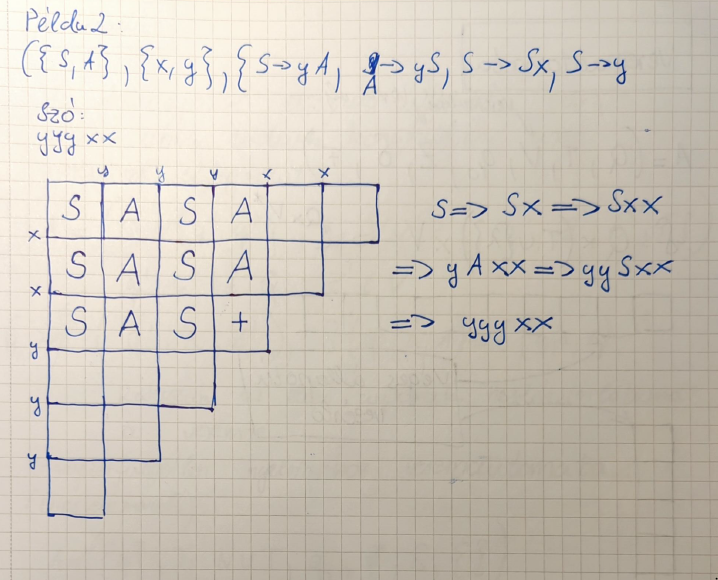 Példa 2:
({S, A}, {x, y}, {S → yA, A → yS, S → Sx, S → y
Szó:
yyy xx
y y y x x
S A S A
x
S A S A
x
S A S +
y
y
y
S => Sx => Sxx
=> y A xx => yy Sxx
=> yyy xx